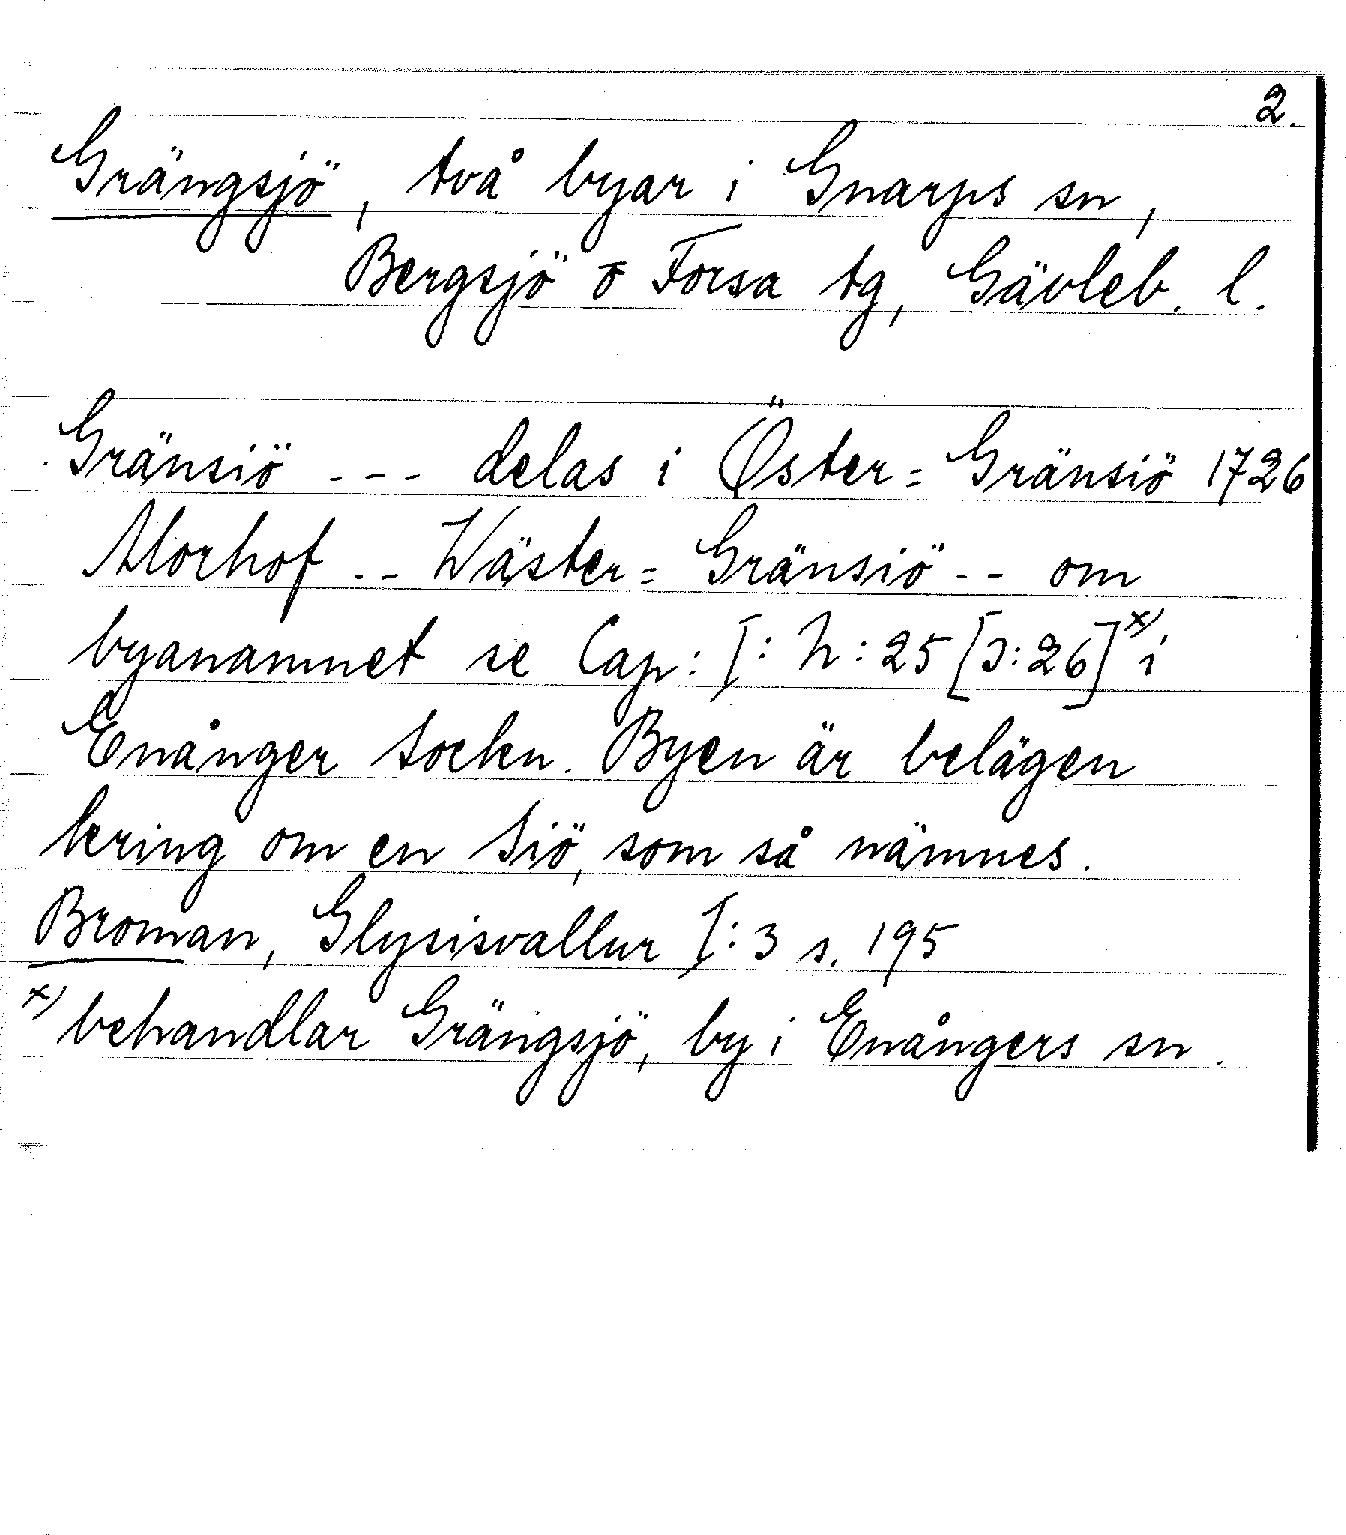 2.
Grängsjö, två byar i Gnarps sn,
Bergsjö o Forsa tg, Gävleb. l.
Gränsiö --- delas i Öster= Gränsiö 1726
Morhof -- Wäster= Gränsiö -- om
byanamnet se Cap: I: h: 25 [J: 26] x) i
Enånger Sockn. Byen är belägen
kring om en Siö, som så nämnes.
Broman, Glysisvallur I: 3 s. 195
x) behandlar Grängsjö, by i Enångers sn.